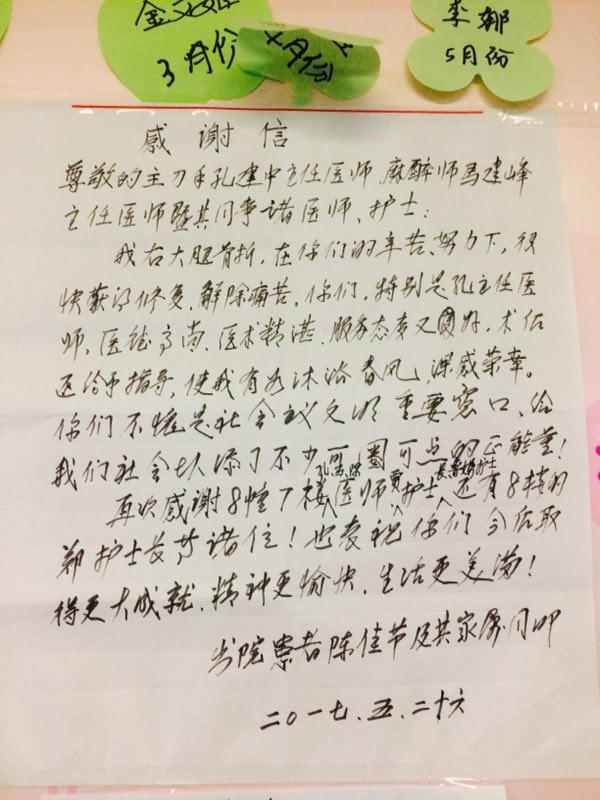 3月份
李娜
5月份
感谢信
尊敬的主刀手孔建中主任医师、麻醉师马建峰
主任医师暨其同事诸医师、护士:
我右大腿骨折,在你们的辛苦、努力下,很
快获得修复、解除痛苦。你们,特别是孔主任医
师、医德高尚、医术精湛、服务态度又好,术后
还给予指导,使我有如沐浴春风,深感荣幸。
你们不愧是社会主义文明重要窗口,给
我们社会增添了不少可圈可点的正能量!
再次感谢8幢7楼医师护士还有8楼的
郑护士长等诸位!也衷祝你们今后取
得更大成就、精神更愉快、生活更美满!
出院患者陈佳节及其家属同叩
二〇一七.五.二十六